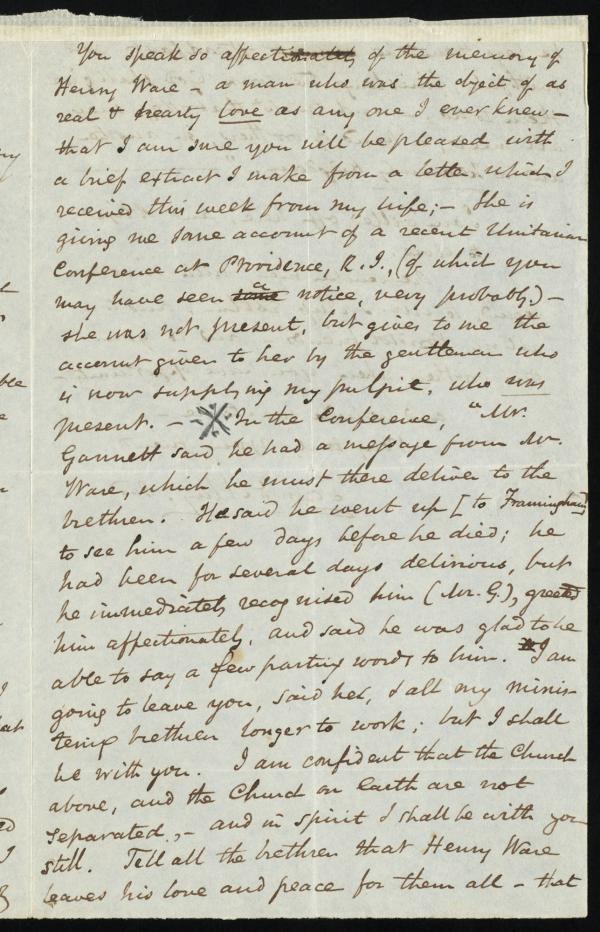 You speak so affectionately of the memory of
Henry Ware - a man who was the object of as
real & hearty love as any one I ever knew -
that I am sure you will be pleased with
a brief extract I make from a letter which I
received this week from my wife; - She is
giving me some account of a recent Unitarian
Conference at Providence, R.I., (of which you
may have seen some a notice, very probably.) -
she was not present, but gives to me the
account given to her by the gentleman who
is now supplying my pulpit, who was
present. - In the Conference, "Mr.
Gannett said he had a message from Mr.
Ware, which he must there deliver to the
brethren. He said he went up [to Framingham]
to see him a few days before he died; he
had been for several days delirious, but
he immediately recognised him (Mr. G.), greeted
him affectionately, and said he was glad to be
able to say a few parting words to him. I am
going to leave you, said he, & all my minis-
tering brethren longer to work; but I shall
be with you. I am confident that the Church
above, and the Church on Earth are not
separated, - and in spirit I shall be with you
still. Tell all the brethren that Henry Ware
leaves his love and peace for them all - that